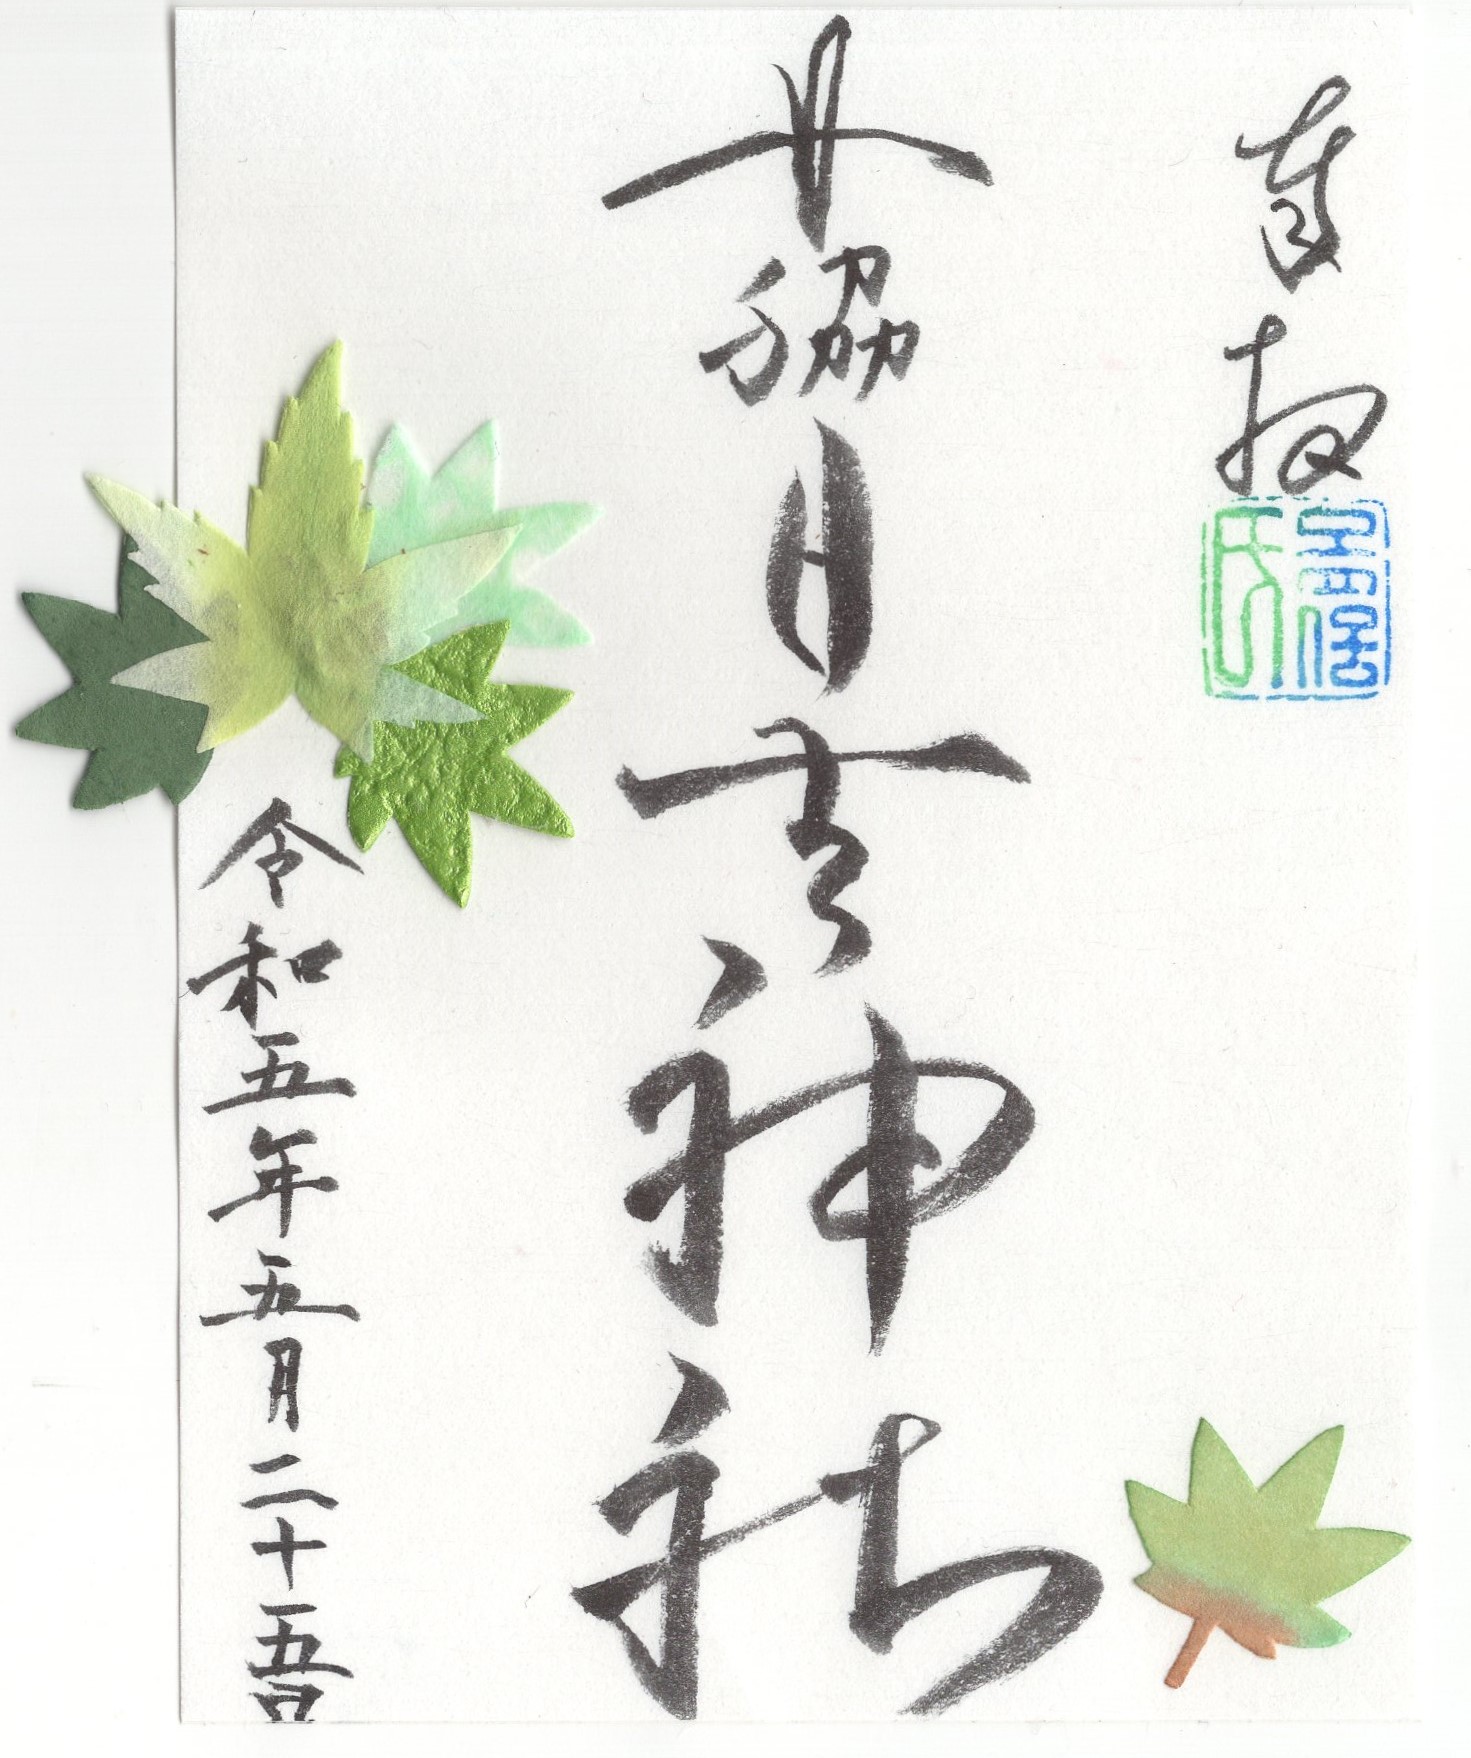 奉拝
脇日吉神社
令和五年五月二十五日